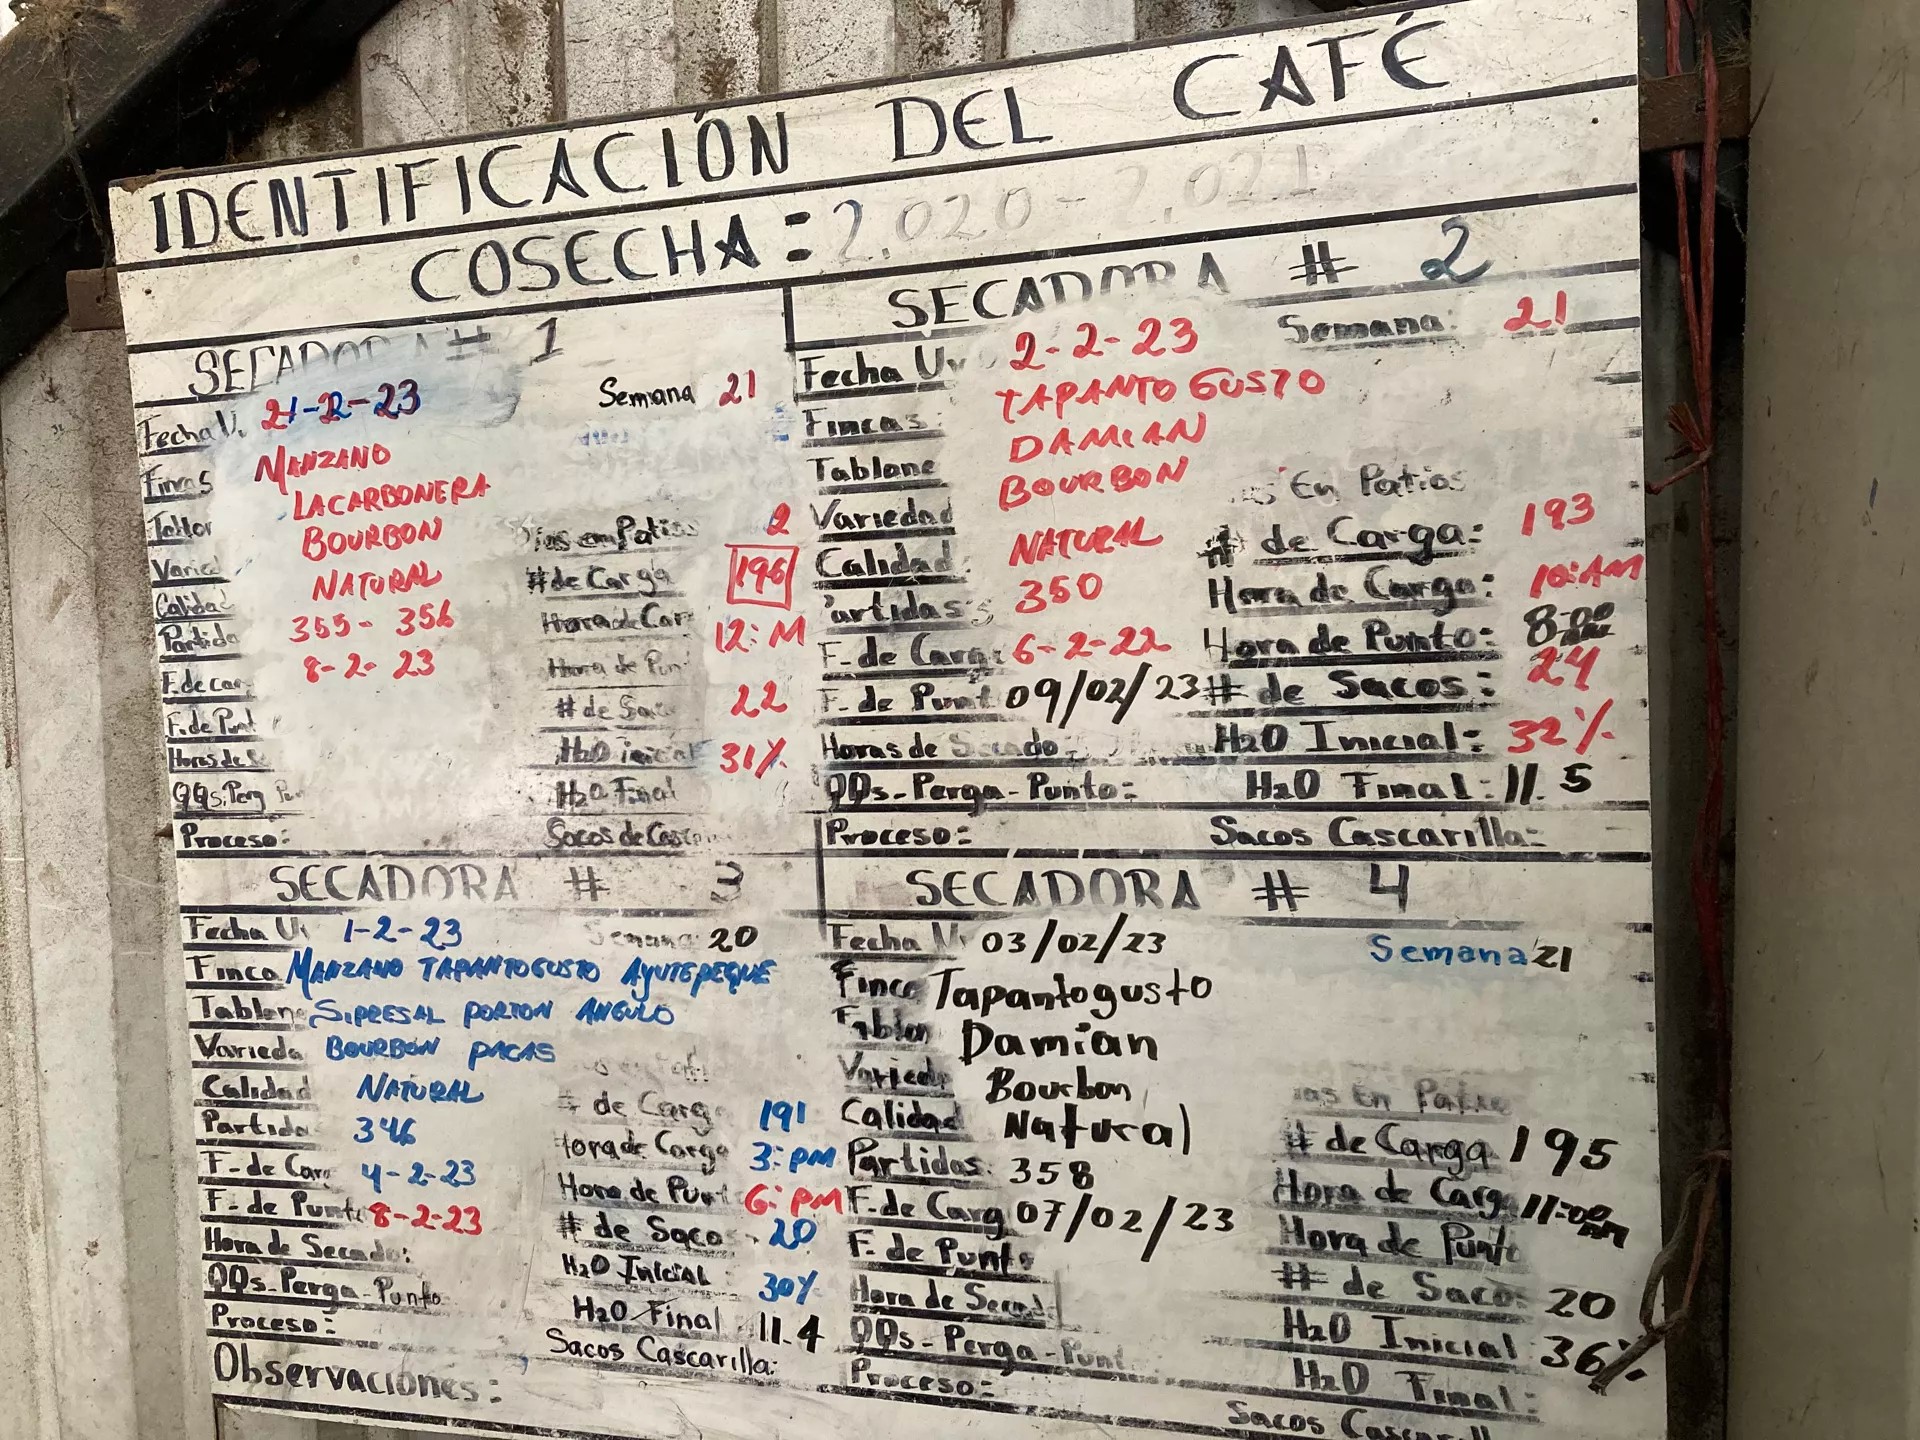 IDENTIFICACIÓN DEL CAFÉ
COSECHA: 2.020-2.021
SECADORA # 1
Semana 21
Fecha U. 21-2-23
Fincas MANZANO
Tablon LACARBONERA
Varied BOURBON
Días en Patios 2
Calidad NATURAL
# de Carga 196
Partida 355- 356
Hora de Car 12: M
F. de car 8-2-23
Hora de Pun
F. de Punt
# de Sac 22
Horas de Se
H2O inicial 31%
QQs. Perg Pun
H2O Final
Proceso:
Sacos de Casc
SECADORA # 2
Fecha Uv 2-2-23 Semana: 21
Fincas: TAPANTO GUSTO
Tablone DAMIAN
Variedad BOURBON
En Patios
Calidad: NATURAL
# de Carga: 193
Partidas: 350
Hora de Carga: 10:AM
F. de Carg: 6-2-22
Hora de Punto: 8:00 am
F. de Punt 09/02/23
# de Sacos: 24
Horas de Secado
H2O Inicial: 32%
QQs-Perga-Punto:
H2O Final: 11.5
Proceso:
Sacos Cascarilla:
SECADORA # 3
Fecha U 1-2-23 Semana: 20
Finca MANZANO TAPANTOGUSTO AYUTEPEQUE
Tablone SIPRESAL PORTON ANGULO
Varieda BOURBON PACAS
Calidad NATURAL
# de Carga 191
Partida 346
Hora de Carga 3: PM
F-de Carg 4-2-23
Hora de Punt 6: PM
F-de Punt: 8-2-23
# de Saco 20
Hora de Secado:
H2O Inicial 30%
QQs-Perga-Punto
H2O Final 11.4
Proceso:
Sacos Cascarilla:
Observaciones:
SECADORA # 4
Fecha U 03/02/23 Semana 21
Finca Tapantogusto
Tablon Damian
Varieda Bourbon
Calidad Natural
ias En Patio
Partidas: 358
# de Carga 195
F-de Carg 07/02/23
Hora de Carg 11:00 AM
F. de Punto
Hora de Punto
Hora de Secad
# de Saco: 20
QQs-Perga-Punt
H2O Inicial 36%
Proceso:
H2O Final:
Sacos Cascarill